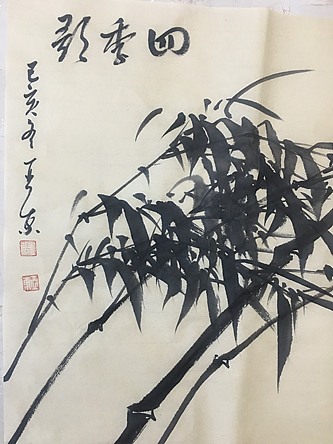 四季歌
己亥冬王东